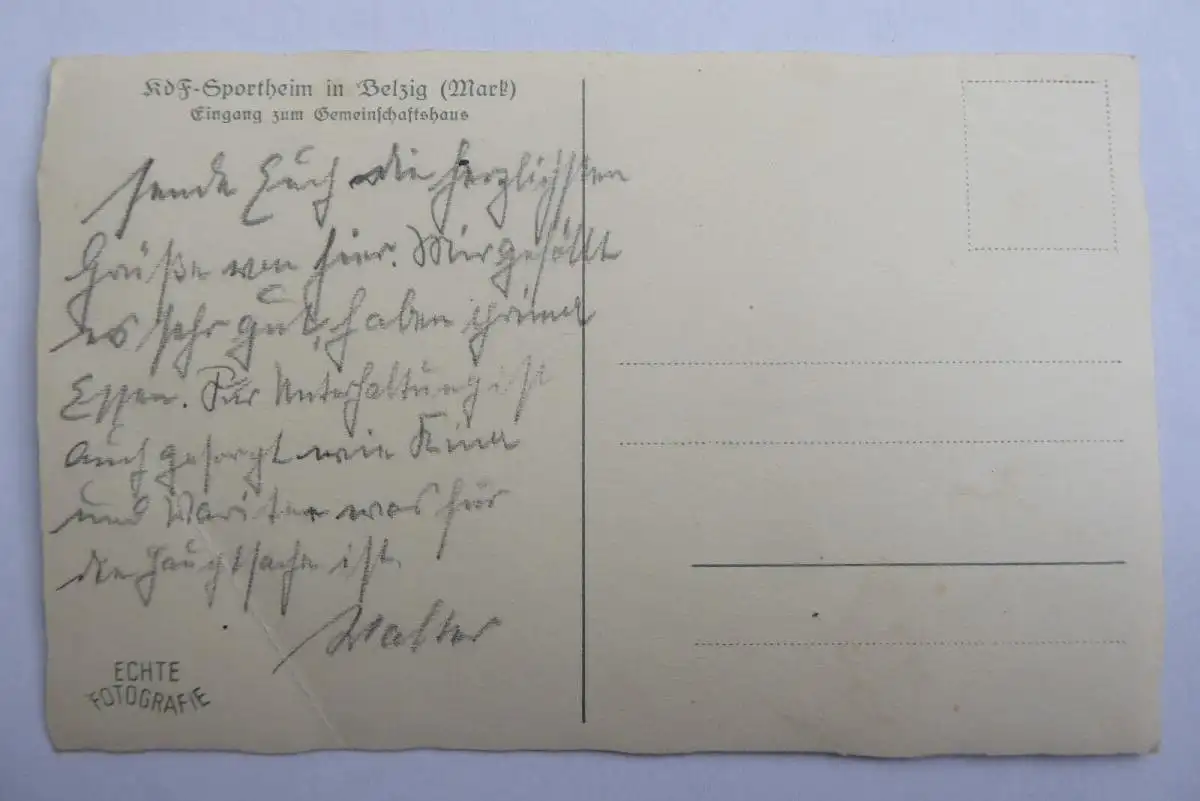 KdF-Sportheim in Belzig (Mark)
Eingang zum Gemeinschaftshaus
sende Euch die herzlichsten
Grüße von hier. Mir gefällt
es sehr gut, haben prima
Essen. Für Unterhaltung ist
auch gesorgt wie Kino
und was für
die Hauptsache ist.
Walter
ECHTE
FOTOGRAFIE